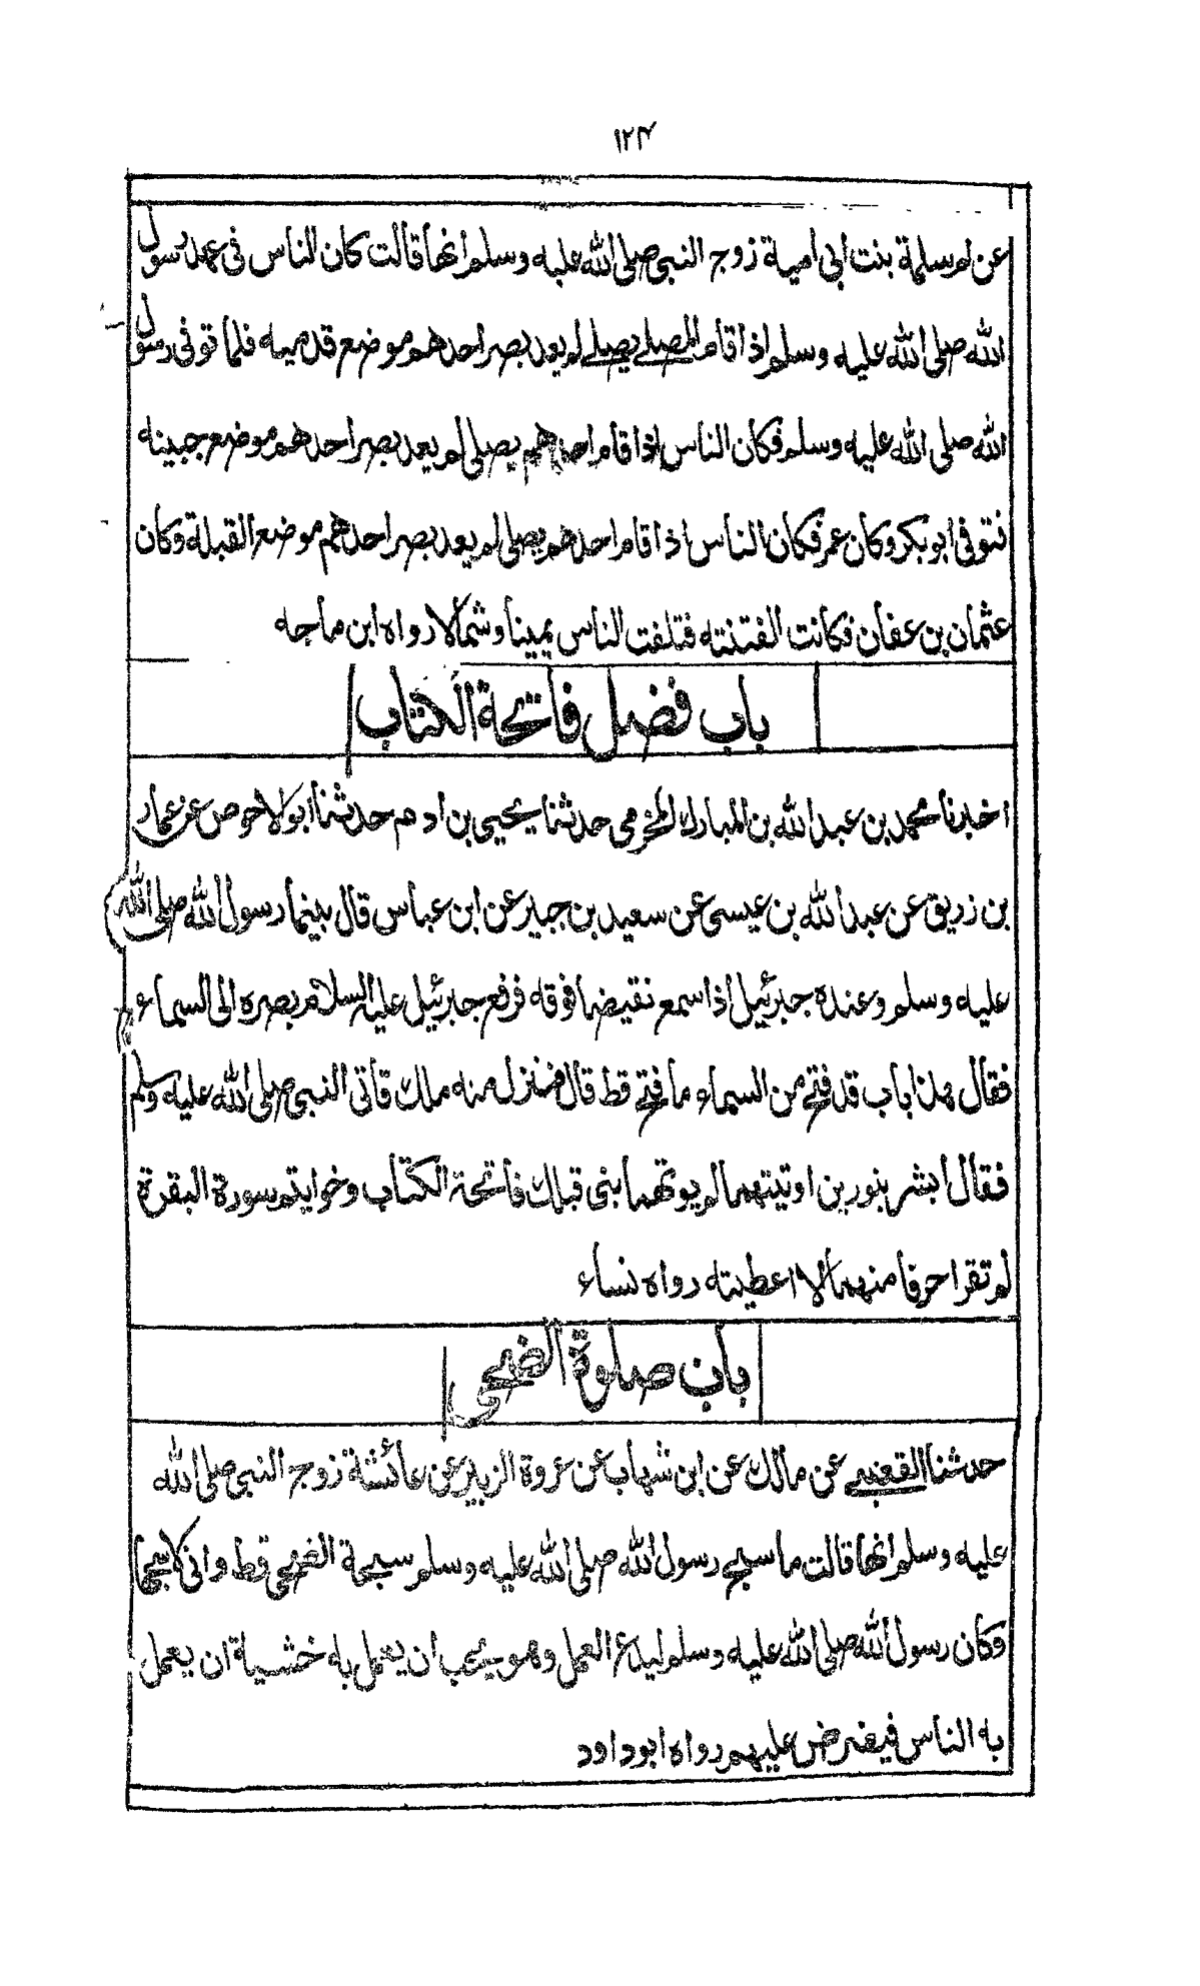 ١٢٤
عن ام سلمة بنت ابى امية زوج النبى صلى الله عليه وسلم انها قالت كان الناس فى عهد رسول
الله صلى الله عليه وسلم اذا قام المصلے يصلے لم يعد بصر احدهم موضع قدميه فلما توفى رسول
الله صلى الله عليه وسلم فكان الناس اذا قام احدهم يصلى لم يعد بصر احدهم موضع جبينه
فتوفى ابو بكر وكان عمر فكان الناس اذا قام احدهم يصلى لم يعد بصر احدهم موضع القبلة وكان
عثمان بن عفان فكانت الفتنته فتلفت الناس يمينا وشمالا رواه ابن ماجه
باب فضل فاتحة الكتاب
اخبرنا محمد بن عبد الله بن المبارك المخرمى حدثنا يحيى بن ادم حدثنا ابو الاحوص عن عمار
بن زريق عن عبد الله بن عيسى عن سعيد بن جبير عن ابن عباس قال بينما رسول الله صلى الله
عليه وسلم وعنده جبرئيل اذا سمع نقيضا فوقه فرفع جبرئيل عليه السلام بصره الى السماء
فقال هذا باب قد فتح من السماء ما فتح قط قال فنزل منه ملك فاتى النبى صلى الله عليه وسلم
فقال ابشر بنورين اوتيتهما لم يوتهما بنى قبلك فاتحة الكتاب وخواتيم سورة البقرة
لم تقرا حرفا منهما الا اعطيته رواه نساء
باب صلوة الضحى
حدثنا القعنبے عن مالك عن ابن شهاب عن عروة الزبير عن عائشة زوج النبى صلى الله
عليه وسلم انها قالت ما سبح رسول الله صلى الله عليه وسلم سبحة الضحى قط وانى لاسبحها
وكان رسول الله صلى الله عليه وسلم ليدع العمل وهو يحب ان يعمل به خشية ان يعمل
به الناس فيفرض عليهم رواه ابو داود